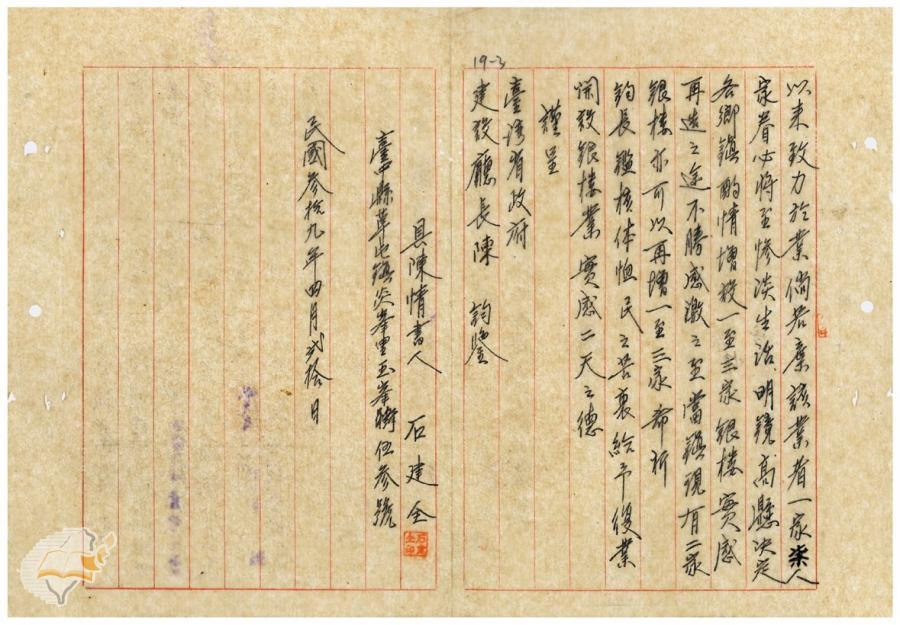 以来致力於業倘若棄該業者一家柒人
家眷必將至慘淡生活、明鏡高懸決定
各鄉鎮酌情增設一至三家銀樓實感
再造之途不勝感激之至當鎮現有二家
銀樓亦可以再增一至三家希祈
鈞長鑑核体恤民之苦衷給予復業
開設銀樓業實感二天之德
謹呈
19-3
臺灣省政府
建設廳長陳 鈞鑒
具陳情書人 石建全
臺中縣草屯鎮炎峯里玉峯街伍参號
民國参拾九年四月弍拾日